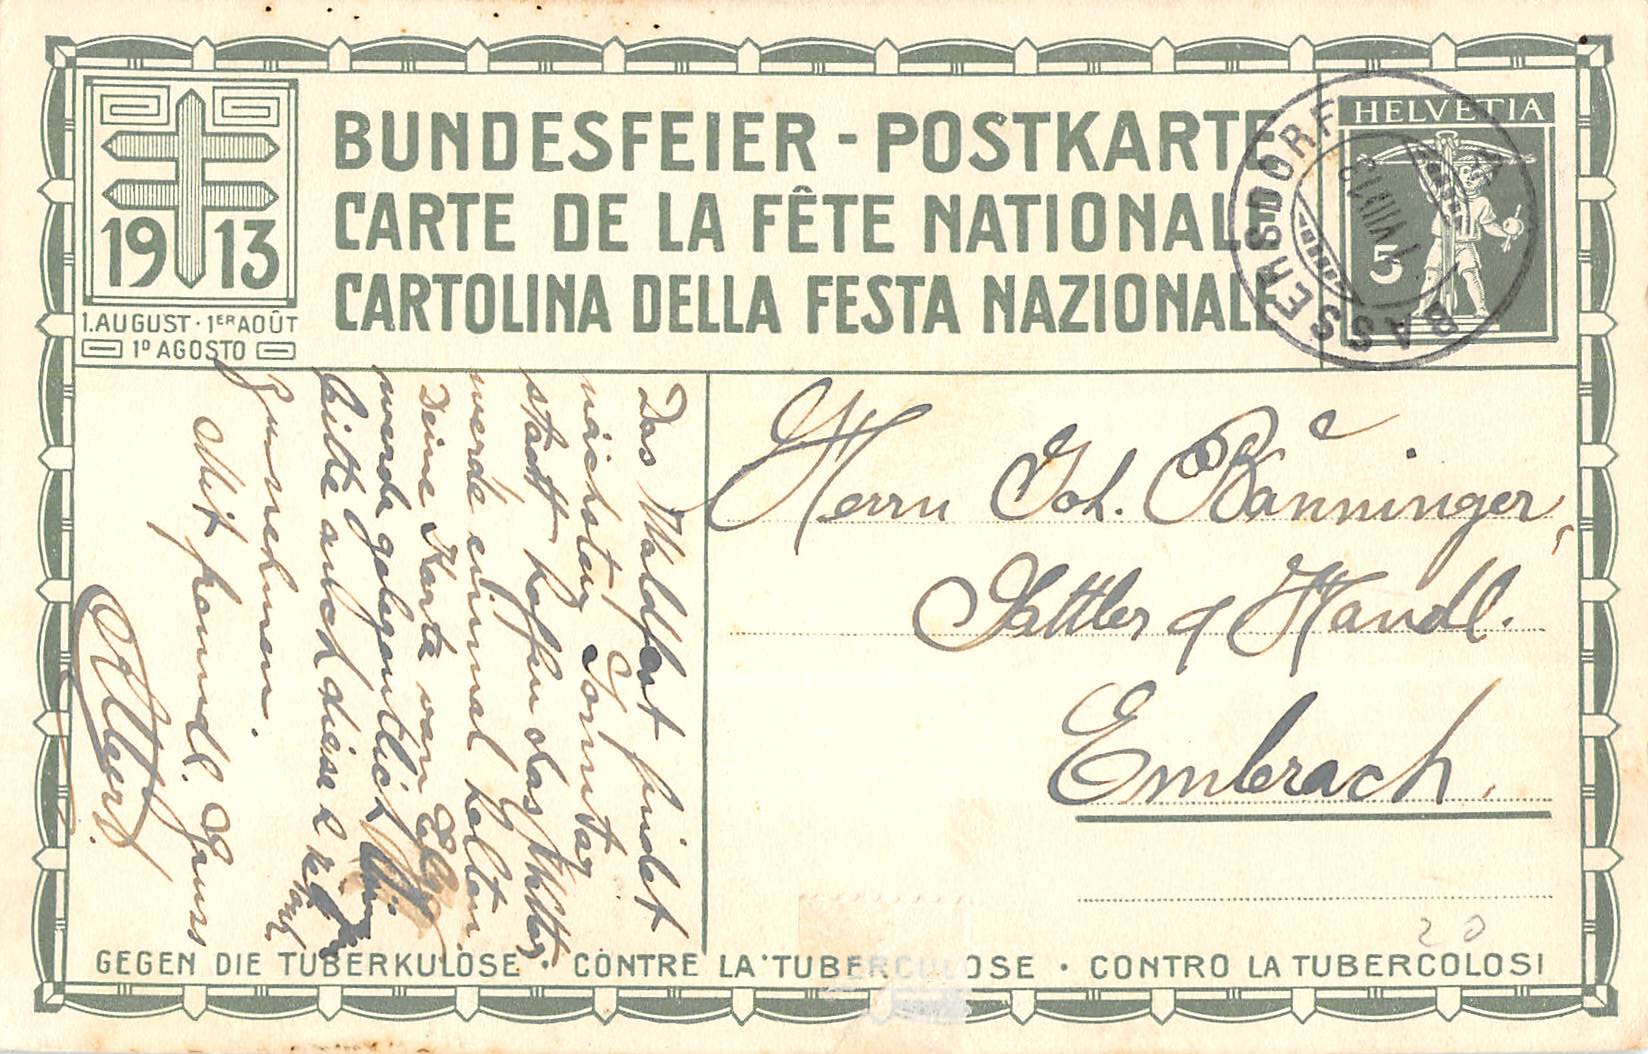 BUNDESFEIER - POSTKARTE
CARTE DE LA FÊTE NATIONALE
CARTOLINA DELLA FESTA NAZIONALE
1913
1. AUGUST · 1ER AOÛT
1º AGOSTO
HELVETIA
5
BASSERSDORF
1 VIII 13
Herrn Joh. Bänninger,
Sattler & Handl.
Embrach.
Das Waldfest findet
nächsten Sonntag
statt hoffen das Wetter
werde einmal halten.
Deine Karte von
werde gelegentlich
bitte auch diese
Mit freundl. Gruss
Albert.
20
GEGEN DIE TUBERKULOSE · CONTRE LA TUBERCULOSE · CONTRO LA TUBERCOLOSI